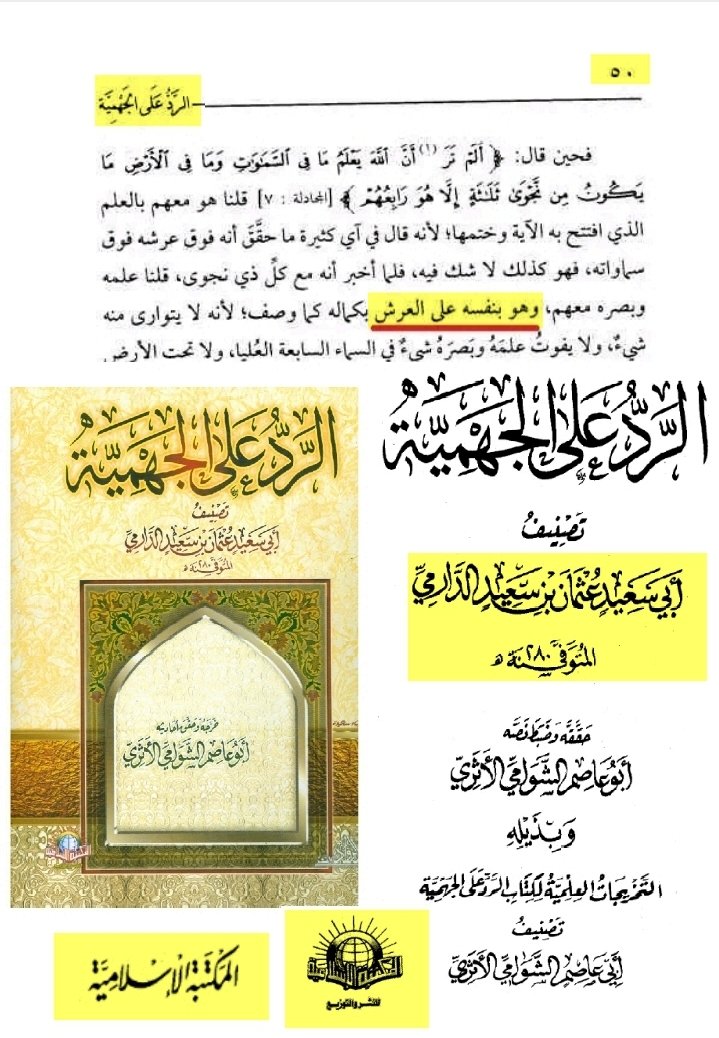 ٥٠
الرَّدُّ عَلَى الْجَهْمِيَّة
فحين قال: ﴿ أَلَمْ تَرَ (١) أَنَّ اللَّهَ يَعْلَمُ مَا فِي السَّمَاوَاتِ وَمَا فِي الْأَرْضِ مَا
يَكُونُ مِن نَّجْوَى ثَلَاثَةٍ إِلَّا هُوَ رَابِعُهُمْ ﴾ [المجادلة : ٧] قلنا هو معهم بالعلم
الذي افتتح به الآية وختمها؛ لأنه قال في آي كثيرة ما حقَّقَ أنه فوق عرشه فوق
سماواته، فهو كذلك لا شك فيه، فلما أخبر أنه مع كلِّ ذي نجوى، قلنا علمه
وبصره معهم، وهو بنفسه على العرش بكماله كما وصف؛ لأنه لا يتوارى منه
شيءٌ، ولا يفوتُ علمَهُ وبَصَرَهُ شيءٌ في السماء السابعة العُليا، ولا تحت الأرض
الرَّدُّ عَلَى الجَهْمِيَّة
تَصْنِيفُ
أَبِي سَعِيدٍ عُثْمَانَ بْنِ سَعِيدٍ الدَّارِمِيِّ
المُتَوَفَّى سَنَة ٢٨٠ هـ
خرّجه وحقق أحاديثه
أَبُو عَاصِمٍ الشَّوَامِيُّ الأَثَرِيُّ
الرَّدُّ عَلَى الجَهْمِيَّة
تَصْنِيفُ
أَبِي سَعِيدٍ عُثْمَانَ بْنِ سَعِيدٍ الدَّارِمِيِّ
المُتَوَفَّى سَنَة ٢٨٠ هـ
حَقَّقَهُ وَضَبَطَ نَصَّهُ
أَبُو عَاصِمٍ الشَّوَامِيُّ الأَثَرِيُّ
وَبِذَيْلِهِ
التَّخْرِيجَاتُ العِلْمِيَّةُ لِكِتَابِ الرَّدِّ عَلَى الجَهْمِيَّة
تَصْنِيفُ
أَبِي عَاصِمٍ الشَّوَامِيِّ الأَثَرِيِّ
المكتبة الإسلامية
المكتبة الإسلامية
للنشر والتوزيع